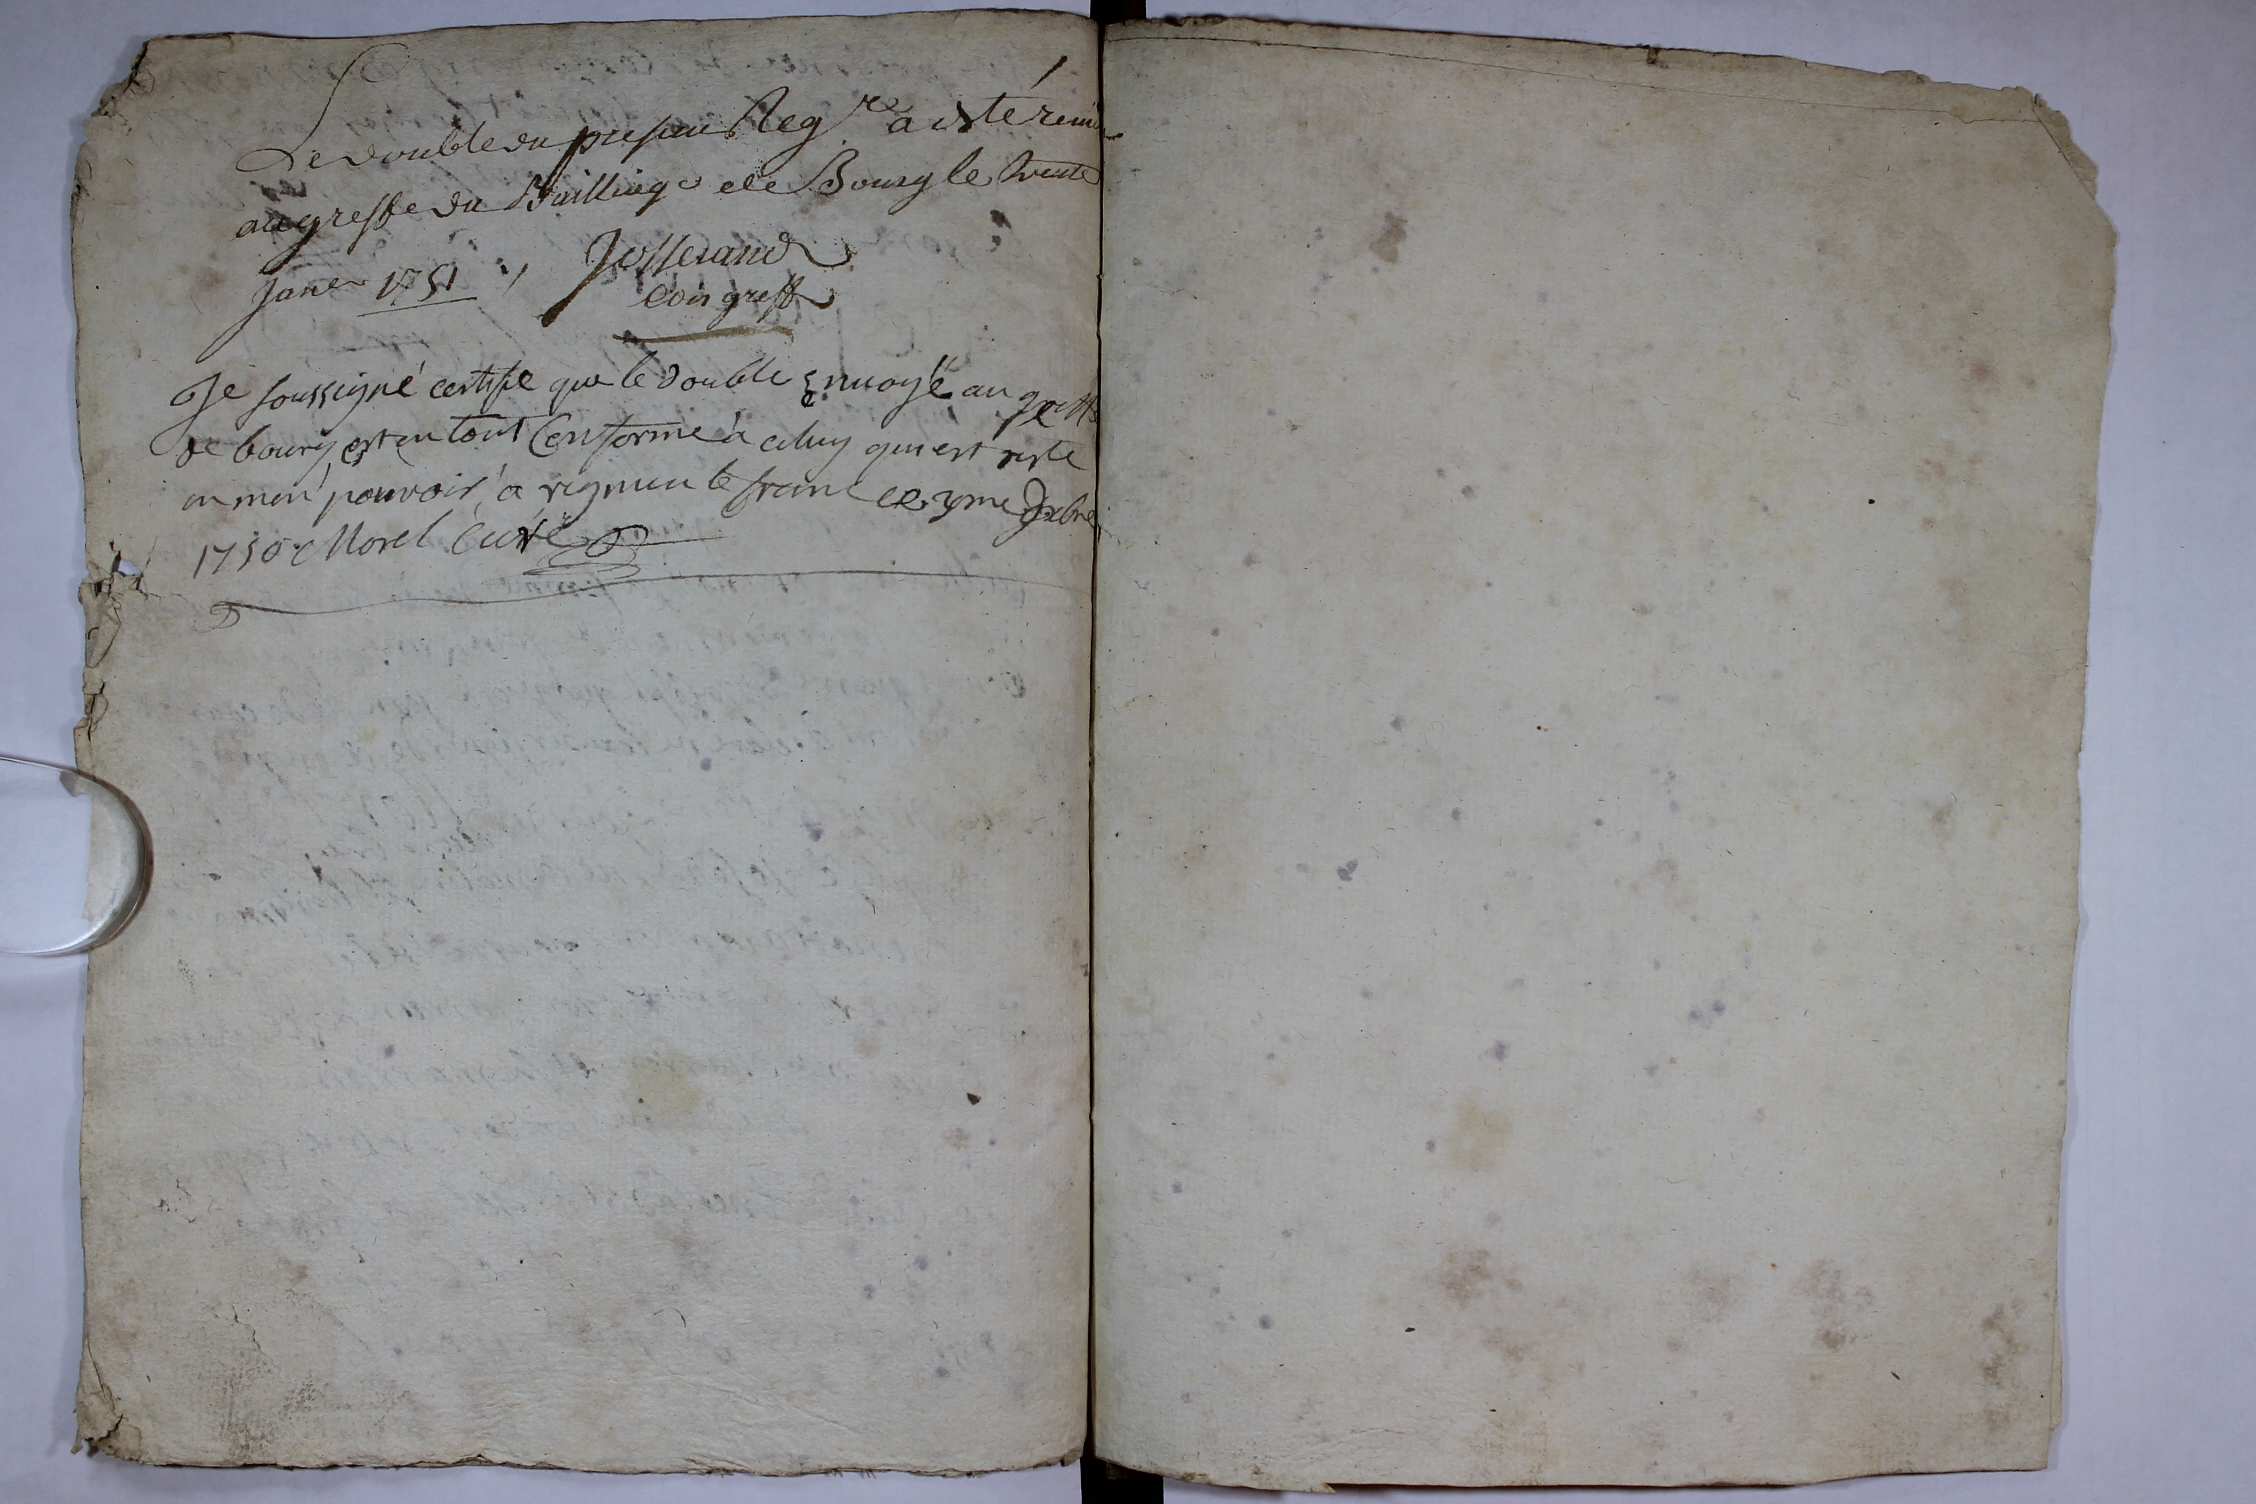 Le double du presant Reg.re a esté remis
au greffe du Bailliage de Bourg le trente
Janer 1751 Josserand
Com greff
Je soussigné certifie que le double envoyé au greffe
de bourg est en tout Conforme à celuy qui est resté
en mon pouvoir, à rigneu le franc ce xbre
1750 Morel Curé